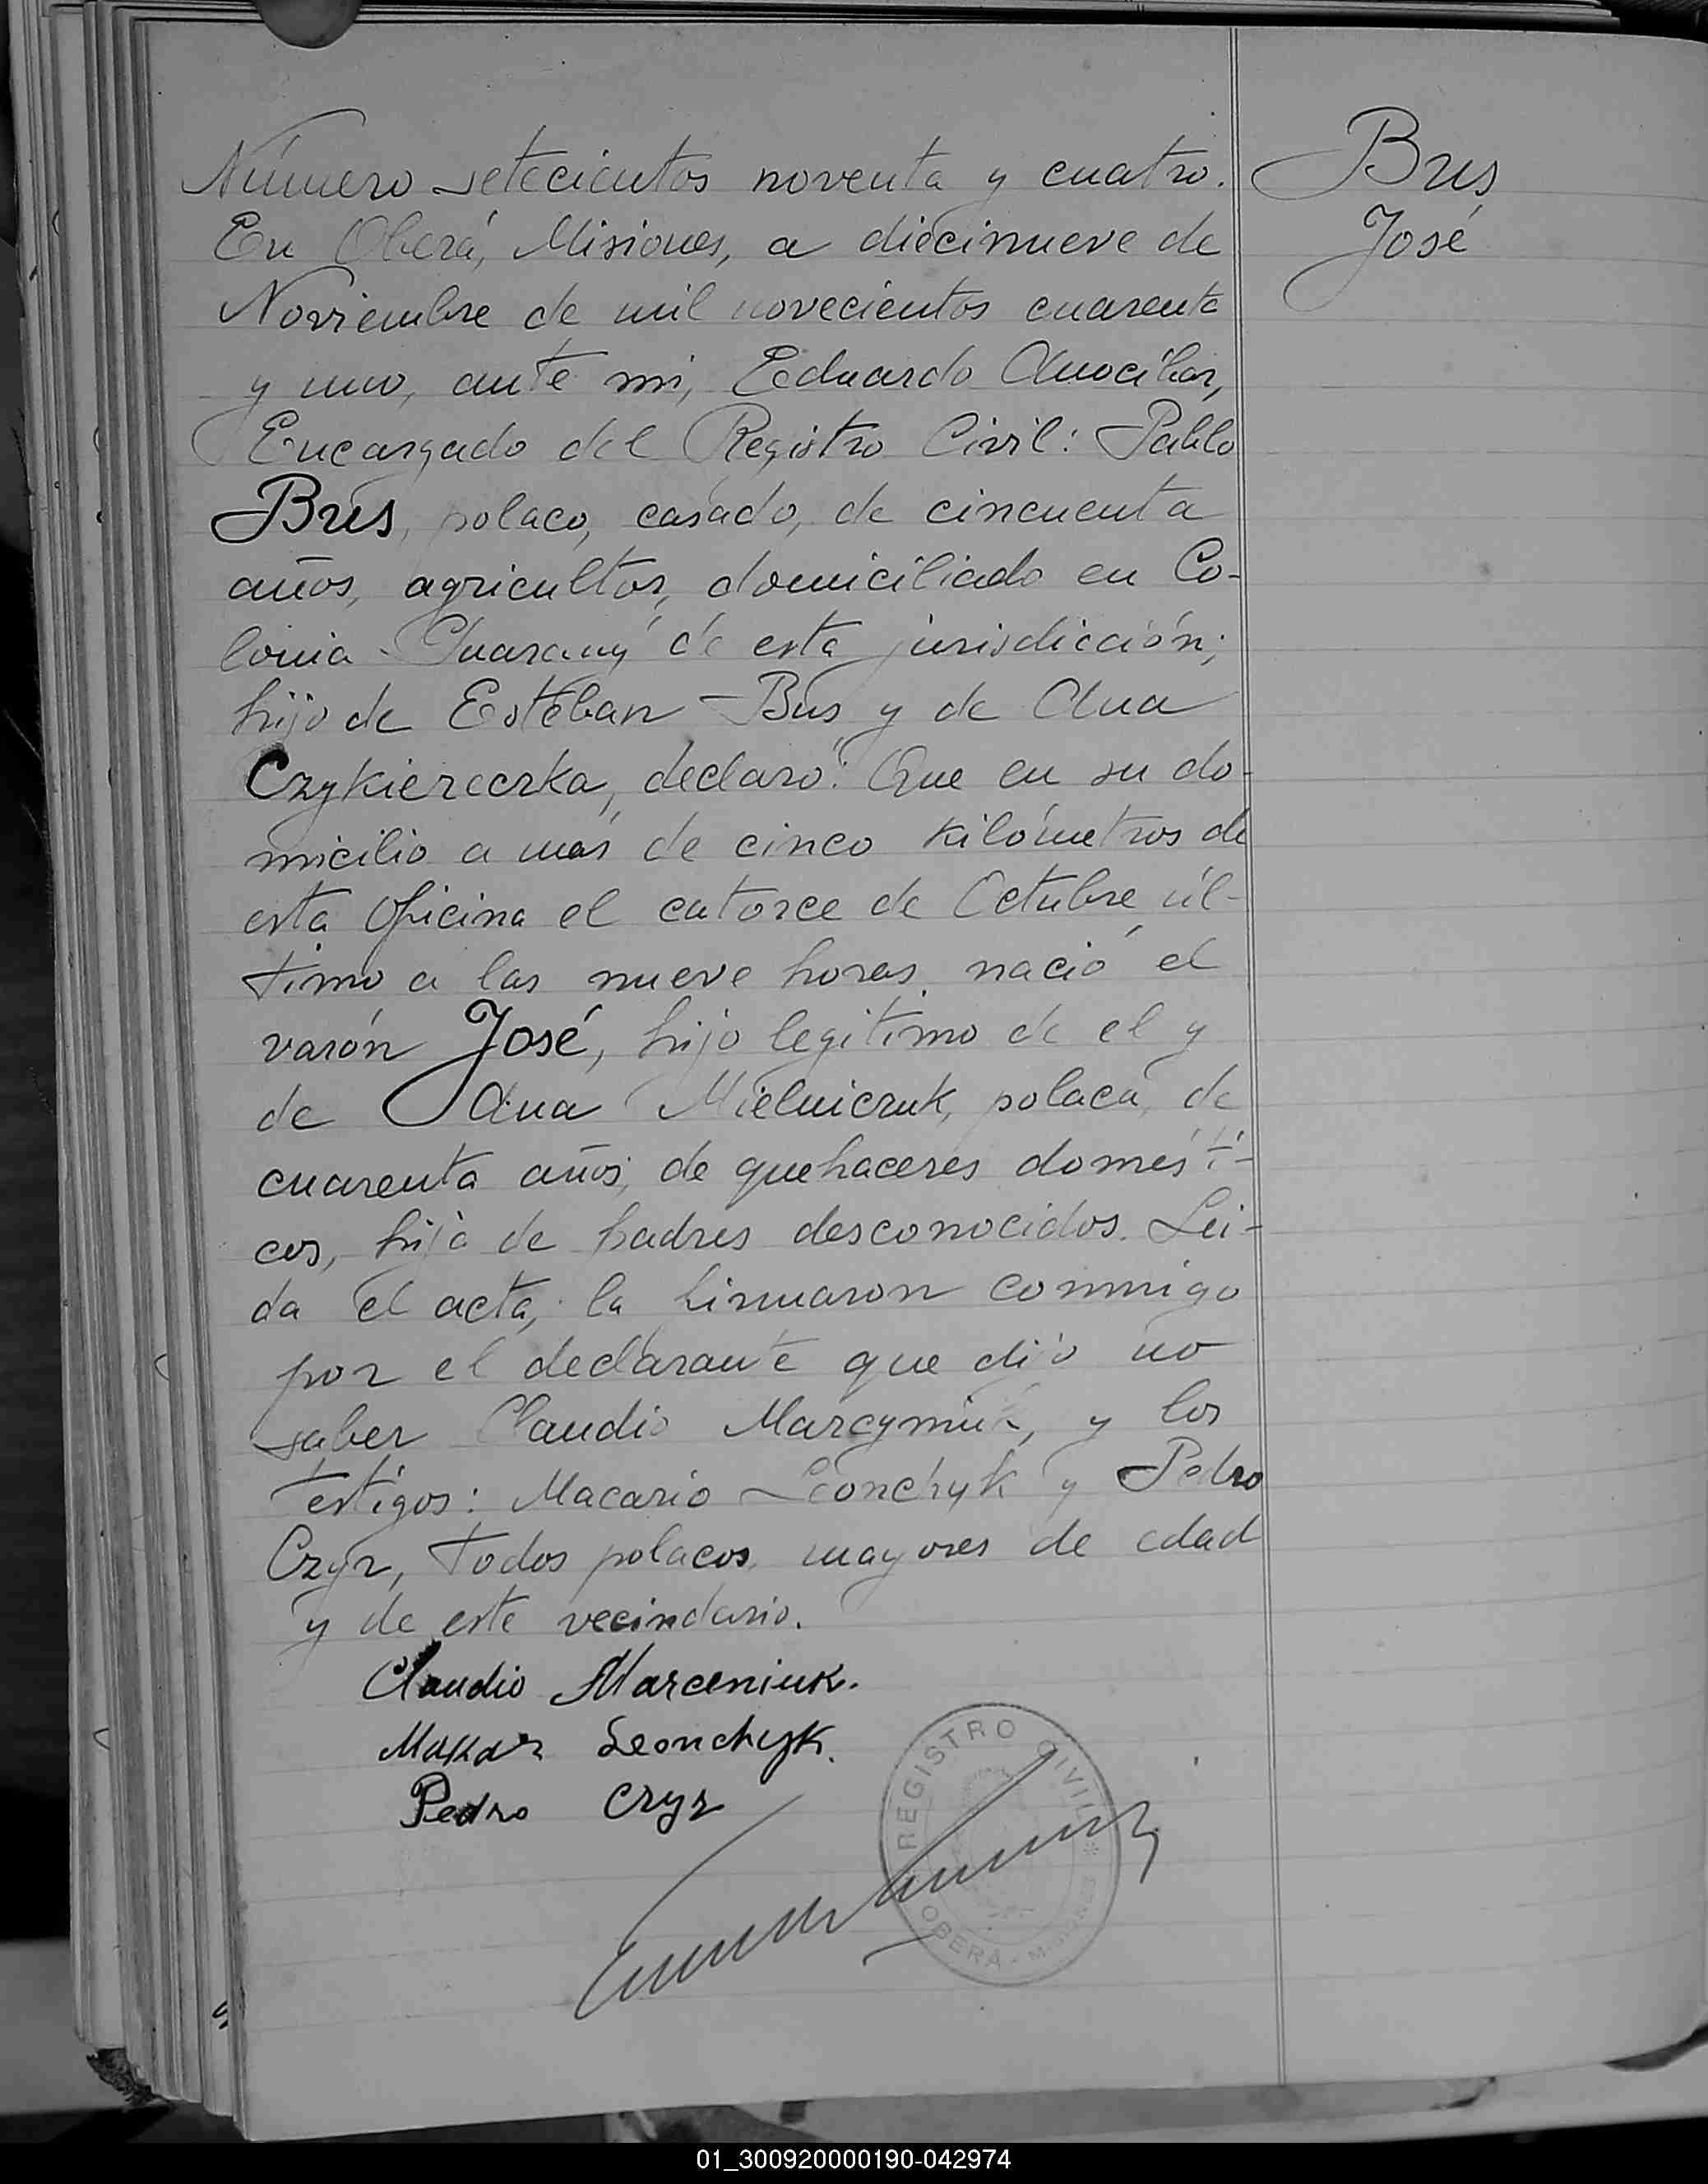 Número setecientos noventa y cuatro.
En Oberá, Misiones, a diecinueve de
Noviembre de mil novecientos cuarenta
y uno, ante mi, Eduardo
Encargado del Registro Civil: Pablo
Bus, polaco, casado, de cincuenta
años, agricultor, domiciliado en Co-
lonia Guarany de esta jurisdicción;
hijo de Esteban Bus y de Ana
declaró: Que en su do-
micilio a más de cinco kilómetros de
esta oficina el catorce de Octubre úl-
timo a las nueve horas nació el
varón José, hijo legitimo de el y
de Ana Mielniczuk, polaca, de
cuarenta años, de quehaceres domésti-
cos, hija de padres desconocidos. Lei-
da el acta, la firmaron conmigo
por el declarante que dijo no
saber Claudio Marcyniuk, y los
testigos: Macario Leonchyk y Pedro
Czyz, todos polacos, mayores de edad
y de este vecindario.
Claudio Marceniuk.
Makar Leonchyk.
Pedro Czyz
Bus
José
REGISTRO CIVIL
OBERÁ - MISIONES
01_300920000190-042974